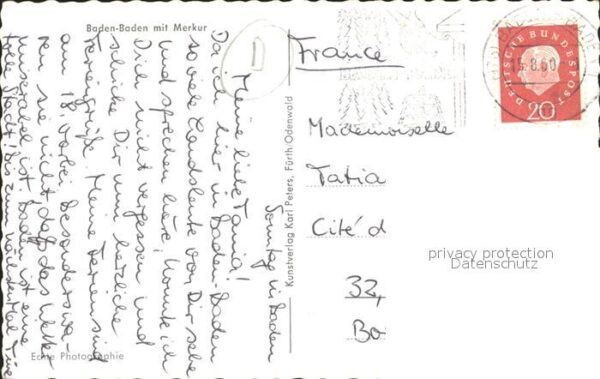 Baden-Baden mit Merkur
Sonntag in Baden
Meine liebe Tania!
Da ich hier in Baden-Baden
so viele Landsleute von Dir sehe
und sprechen höre, konnte ich
Dich nicht vergessen und
schicke Dir nun herzliche
Feriengrüße. Meine Ferien sind
am 18. vorbei, besonders wa-
ren sie nicht, daß das Wetter
miserabel ist. Baden ist eine
Stadt! Bis zum nächsten Mal
Echte Photographie
Kunstverlag Karl Peters, Fürth/Odenwald
France
Mademoiselle
Tatia
Cité d
32,
Bo
DEUTSCHE BUNDESPOST
20
privacy protection
Datenschutz